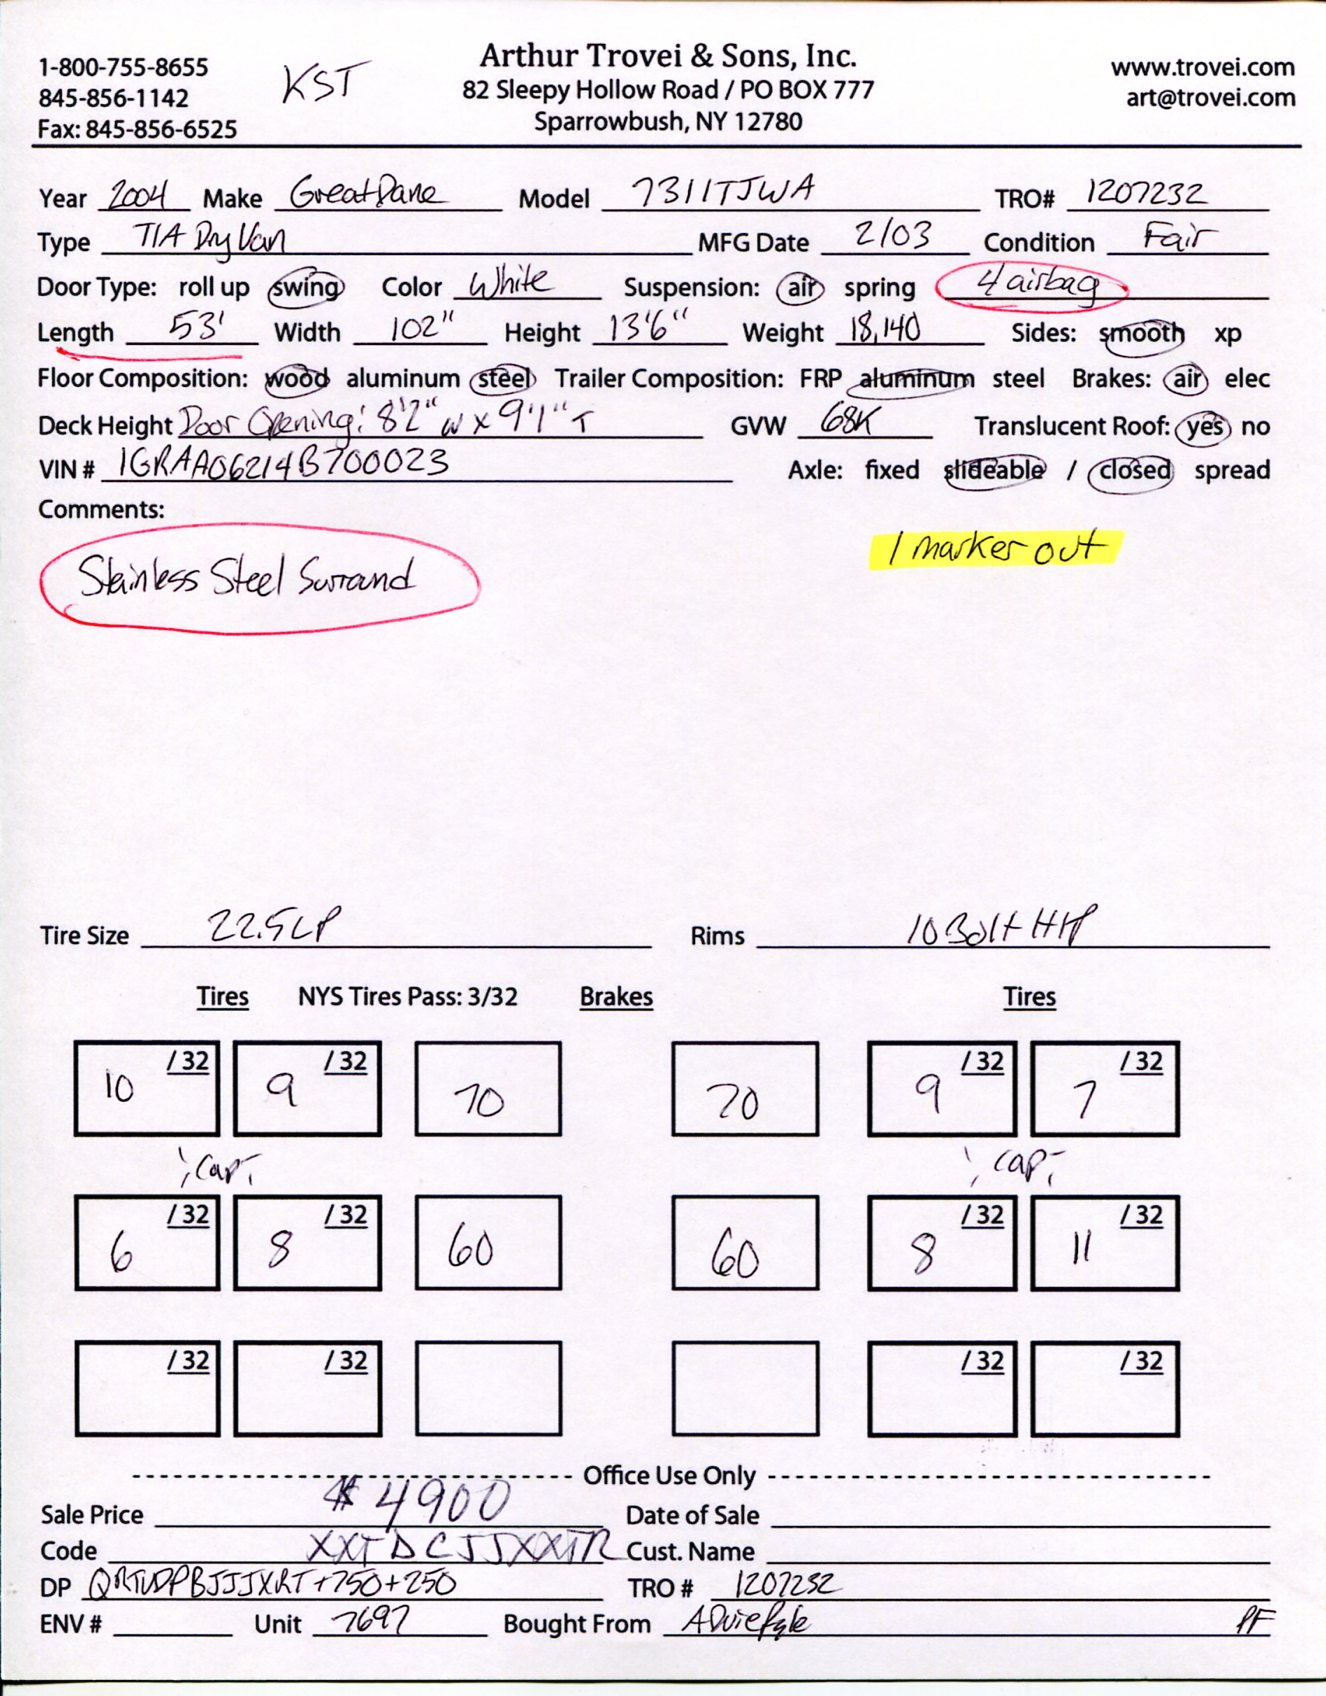 1-800-755-8655
845-856-1142
Fax: 845-856-6525
KST
Arthur Trovei & Sons, Inc.
82 Sleepy Hollow Road / PO BOX 777
Sparrowbush, NY 12780
www.trovei.com
art@trovei.com
Year 2004 Make Great Dane Model 7311TJWA TRO# 1207232
Type T/A Dry Van MFG Date 2/03 Condition Fair
Door Type: roll up swing Color White Suspension: air spring 4 airbag
Length 53' Width 102" Height 13'6" Weight 18,140 Sides: smooth xp
Floor Composition: wood aluminum steel Trailer Composition: FRP aluminum steel Brakes: air elec
Deck Height Door Opening: 8'2" W x 9'1" T GVW 68K Translucent Roof: yes no
VIN # 1GRAA06214B700023 Axle: fixed slideable / closed spread
Comments:
1 marker out
Stainless Steel Surround
Tire Size 22.5LP Rims 10 Bolt HP
Tires NYS Tires Pass: 3/32 Brakes Tires
10 /32 9 /32 70 70 9 /32 7 /32
; cap; ; cap;
6 /32 8 /32 60 60 8 /32 11 /32
/32 /32 /32 /32
Office Use Only
Sale Price $4900 Date of Sale
Code XXTDCJJXXTR Cust. Name
DP +750+250 TRO # 1207232
ENV # Unit 7697 Bought From PF